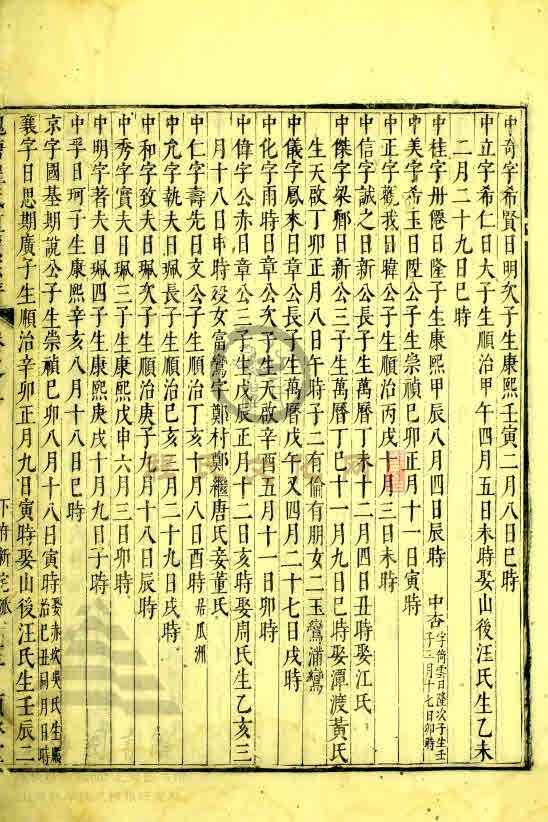 中奇字希賢日明次子生康熙壬寅二月八日巳時
中立字希仁日大子生順治甲午四月五日未時娶山後汪氏生乙未
二月二十九日巳時
中桂字冊倦日隆子生康熙甲辰八月四日辰時 中杏字倚雲日隆次子生壬子二月十七日卯時
中美字希玉日陞公子生崇禎巳卯正月十一日寅時
中正字觀我日暐公子生順治丙戌十月三日未時
中信字誠之日新公長子生萬曆丁未十二月四日丑時娶江氏
中傑字梁鄉日新公三子生萬曆丁巳十一月九日巳時娶潭渡黃氏
生天啟丁卯正月八日午時子二有倫有朋女二玉鸞浦鸞
中儀字鳳來日章公長子生萬曆戊午又四月二十七日戌時
中化字雨時日章公次子生天啟辛酉五月十一日卯時
中偉字公赤日章公三子生崇禎戊辰正月十二日亥時娶周氏生乙亥三
月十八日申時歿女富鸞字鄭村鄭繼唐氏妾董氏
中仁字壽先日文公子生順治丁亥十月八日酉時居瓜洲
中允字執夫日珮長子生順治巳亥三月二十九日戌時
中和字致夫日珮次子生順治庚子九月十八日辰時
中秀字實夫日珮三子生康熙戊申六月三日卯時
中明字著夫日珮四子生康熙庚戌十月九日子時
中孚日珂子生康熙辛亥八月十八日巳時
京字國基期說公子生崇禎巳卯八月十八日寅時娶赤坎吳氏生順治巳丑月日時
襄字日思期廣子生順治辛卯正月九日寅時娶山後汪氏生壬辰二